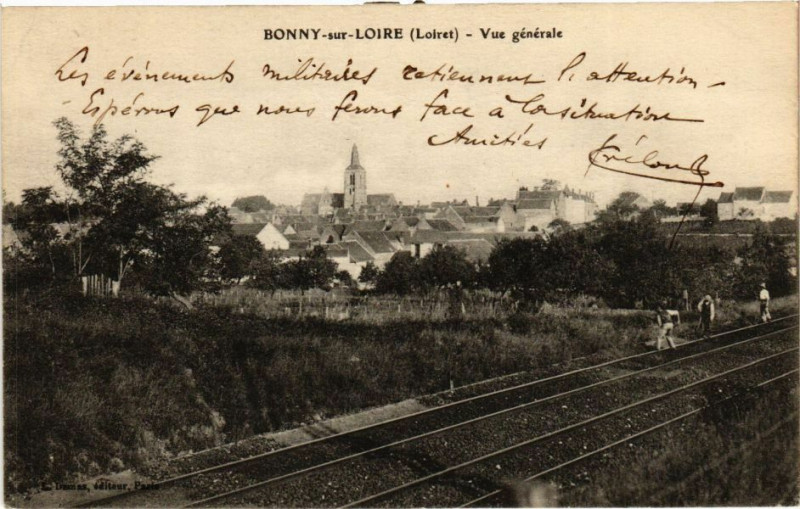 BONNY-sur-LOIRE (Loiret) - Vue générale
Les événements militaires retiennent l'attention -
- Espérons que nous ferons face à la situation
Amitiés
éditeur, Paris